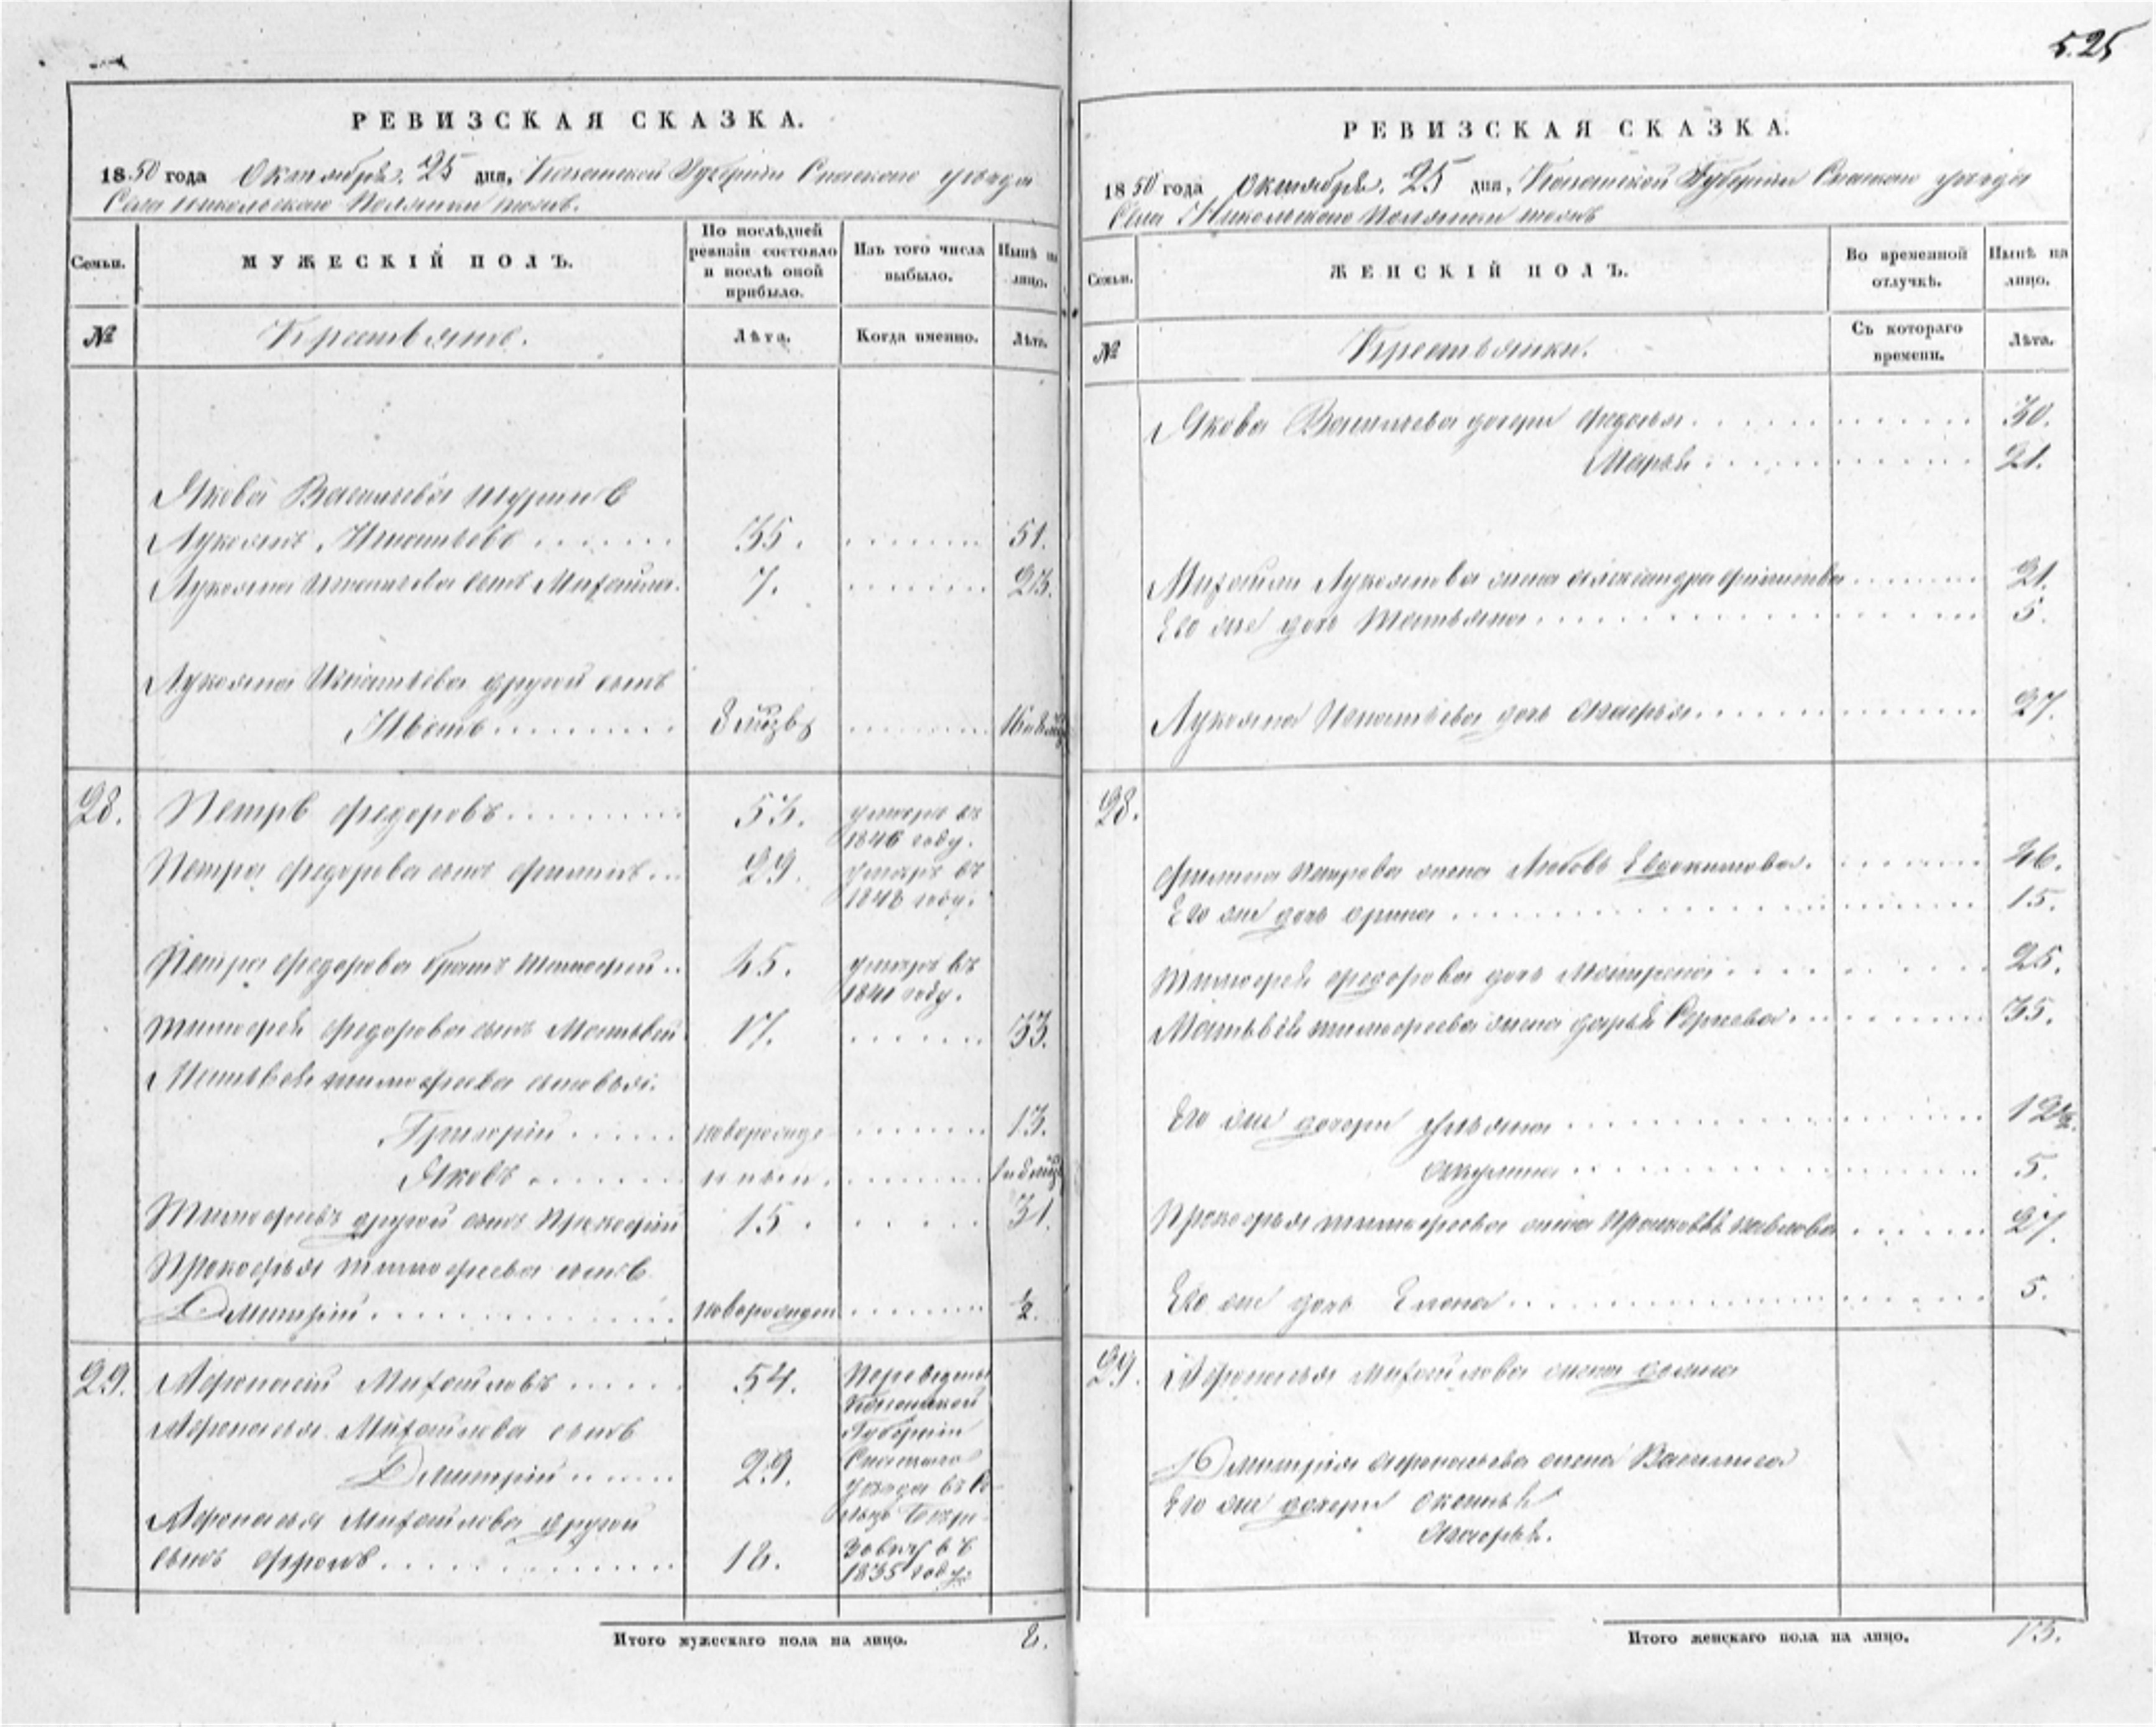 525
РЕВИЗСКАЯ СКАЗКА.
1850 года Октября 25 дня, Казанской Губернии Спаского уезда
Села Никольского Полянки тожъ.
Семьи.
МУЖЕСКІЙ ПОЛЪ.
По послѣдней ревизіи состояло и послѣ оной прибыло.
Изъ того числа выбыло.
Нынѣ на лицо.
№
Крестьяне.
Лѣта.
Когда именно.
Лѣта.
Якова Васильева шуринъ
Лукоянъ Игнатьевъ 35. 51.
Лукояна Игнатьева сынъ Михайла 7. 23.
Лукояна Игнатьева другой сынъ
8 мцвъ 16 и 8
28. Петръ Федоровъ 53. умеръ въ
1846 году.
Петра Федорова сынъ Филипъ 29. умеръ въ
году.
Петра Федорова братъ Тимофей 45. умеръ въ
1841 году.
Тимофея Федорова сынъ Матвей 17. 33.
Матвея Тимофеева сыновья:
Григорий новорожде 13.
Яковъ нныи. 1 и 8 мцв
Тимофеевъ другой сынъ Прокофий 15. 31.
Прокофья Тимофеева сынъ
Дмитрий новорожден ½.
29. Афонасий Михайловъ 54. Переведены
Казанской
Афонасья Михайлова сынъ Губернии
Дмитрий 29. Спаского
уезда въ Се-
Афонасья Михайлова другой
сынъ 12. въ
1835 году.
Итого мужескаго пола на лицо. 8.
РЕВИЗСКАЯ СКАЗКА.
1850 года Октября 25 дня, Казанской Губернии Спаского уезда
Села Никольского Полянки тожъ
Семьи.
ЖЕНСКІЙ ПОЛЪ.
Во временной отлучкѣ.
Нынѣ на лицо.
№
Крестьянки.
Съ котораго времени.
Лѣта.
Якова Васильева дочери Федосья 30.
Марья 21.
Михайлы Лукоянова жена Александра 21.
Его же дочь Татьяна 5.
Лукояна Игнатьева дочь 27.
28.
Филипа Петрова жена Любовь Евдокимова. 46.
Его же дочь Арина 15.
Тимофея Федорова дочь Матрена 25.
Матвея Тимофеева жена Дарья Сергеева 35.
Его же дочери Ульяна 12½.
Акулина 5.
Прокофья Тимофеева жена Прасковья Павлова 27.
Его же дочь Елена 5.
29. Афонасья Михайлова жена
Дмитрия Афонасьева жена Василиса
Его же дочери Аксинья
Агафья.
Итого женскаго пола на лицо. 13.